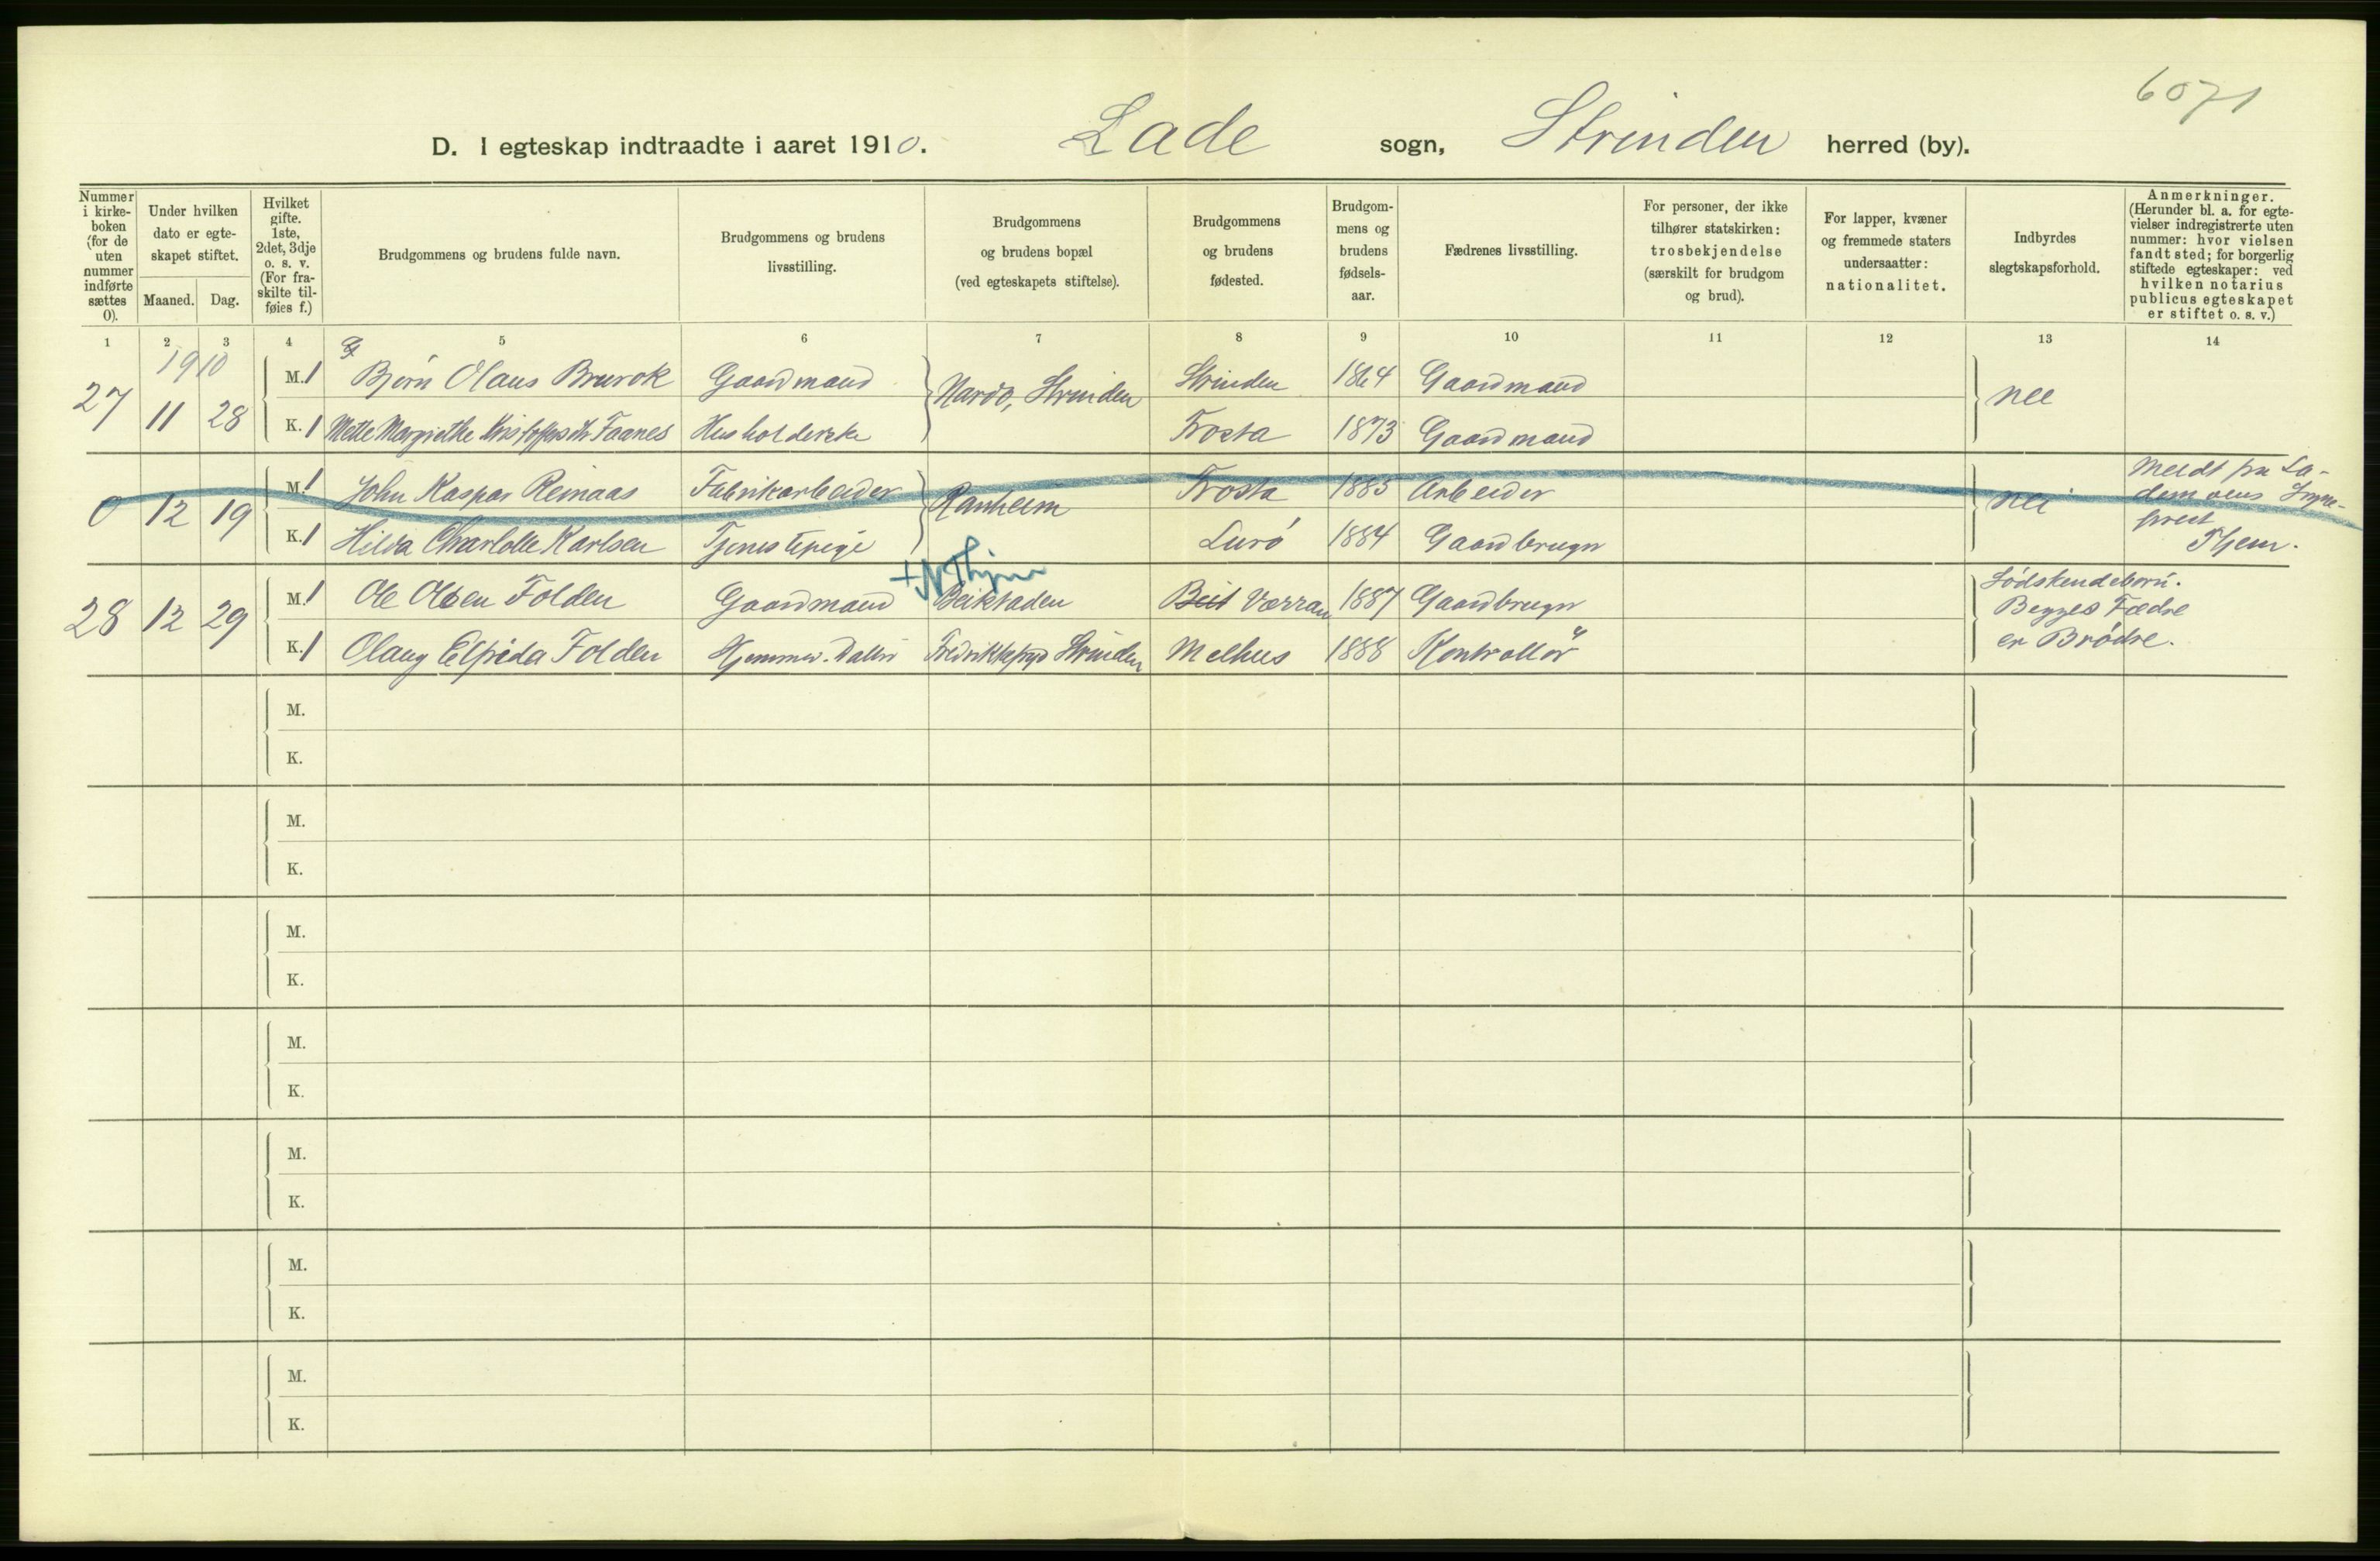 6071
D. I egteskap indtraadte i aaret 1910. Lade sogn, Strinden herred (by).
Nummer i kirke-boken (for de uten nummer indførte sættes 0).
Under hvilken dato er egte-skapet stiftet.
Maaned. Dag.
Hvilket gifte. 1ste, 2det, 3dje o. s. v. (For fra-skilte til-føies f.)
Brudgommens og brudens fulde navn.
Brudgommens og brudens livsstilling.
Brudgommens og brudens bopæl (ved egteskapets stiftelse).
Brudgommens og brudens fødested.
Brudgom-mens og brudens fødsels-aar.
Fædrenes livsstilling.
For personer, der ikke tilhører statskirken: trosbekjendelse (særskilt for brudgom og brud).
For lapper, kvæner og fremmede staters undersaatter: nationalitet.
Indbyrdes slegtskapsforhold.
Anmerkninger. (Herunder bl. a. for egte-vielser indregistrerte uten nummer: hvor vielsen fandt sted; for borgerlig stiftede egteskaper: ved hvilken notarius publicus egteskapet er stiftet o. s. v.)
1 2 3 4 5 6 7 8 9 10 11 12 13 14
1910
27 11 28 M. 1 Bjørn Olaus Brurok Gaardmand Nardo, Strinden Strinden 1864 Gaardmand nei
K. 1 Mette Margrethe Kristoffersdtr Faanes Husholderske Frosta 1873 Gaardmand
0 12 19 M. 1 John Kaspar Reinaas Fabrikarbeider Ranheim Frosta 1885 Arbeider nei Meldt fra La-
demoens Sogne-
prest
Thjem.
K. 1 Hilda Charlotte Karlsen Tjenestepige Lurö 1884 Gaardbruger
+ N Thjem
28 12 29 M. 1 Ole Olsen Folden Gaardmand Beitstaden Beit Værran 1887 Gaardbruger Södskendebörn.
Begges Fædre
er Brödre.
K. 1 Olaug Elfrida Folden Hjemmev. Datter Strinden Melhus 1888 Kontrollör
M.
K.
M.
K.
M.
K.
M.
K.
M.
K.
M.
K.
M.
K.